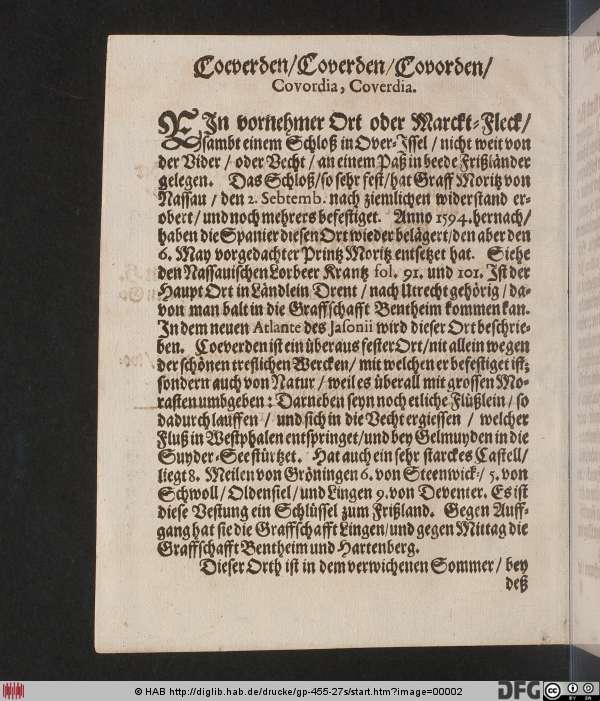 Coeverden/Coverden/Covorden/
Covordia, Coverdia.
EIn vornehmer Ort oder Marckt-Fleck/
sambt einem Schloß in Over-Issel / nicht weit von
der Vider / oder Vecht / an einem Paß in beede Frißländer
gelegen. Das Schloß/so sehr fest/hat Graff Moritz von
Nassau / den 2. Sebtemb. nach ziemlichen widerstand er-
obert/und noch mehrers befestiget. Anno 1594. hernach/
haben die Spanier diesen Ort wieder belägert/den aber den
6. May vorgedachter Printz Moritz entsetzet hat. Siehe
den Nassauischen Lorbeer Krantz fol. 91. und 101. Ist der
Haupt Ort in Ländlein Drent / nach Utrecht gehörig / da-
von man balt in die Graffschafft Bentheim kommen kan.
In dem neuen Atlante des Jasonii wird dieser Ort beschrie-
ben. Coeverden ist ein überaus fester Ort/nit allein wegen
der schönen treflichen Wercken/ mit welchen er befestiget ist;
sondern auch von Natur / weil es überall mit grossen Mo-
rasten umbgeben: Darneben seyn noch etliche Flüßlein/ so
dadurch lauffen / und sich in die Vecht ergiessen / welcher
Fluß in Westphalen entspringet/und bey Gelmuyden in die
Suyder-See stürtzet. Hat auch ein sehr starckes Castell/
liegt 8. Meilen von Gröningen 6. von Steenwick-/ 5. von
Schwoll/ Oldensiel/und Lingen 9. von Deventer. Es ist
diese Vestung ein Schlüssel zum Frißland. Gegen Auff-
gang hat sie die Graffschafft Lingen/und gegen Mittag die
Graffschafft Bentheim und Hartenberg.
Dieser Orth ist in dem verwichenen Sommer/ bey
deß
© HAB http://diglib.hab.de/drucke/gp-455-27s/start.htm?image=00002
DFG
cc BY SA